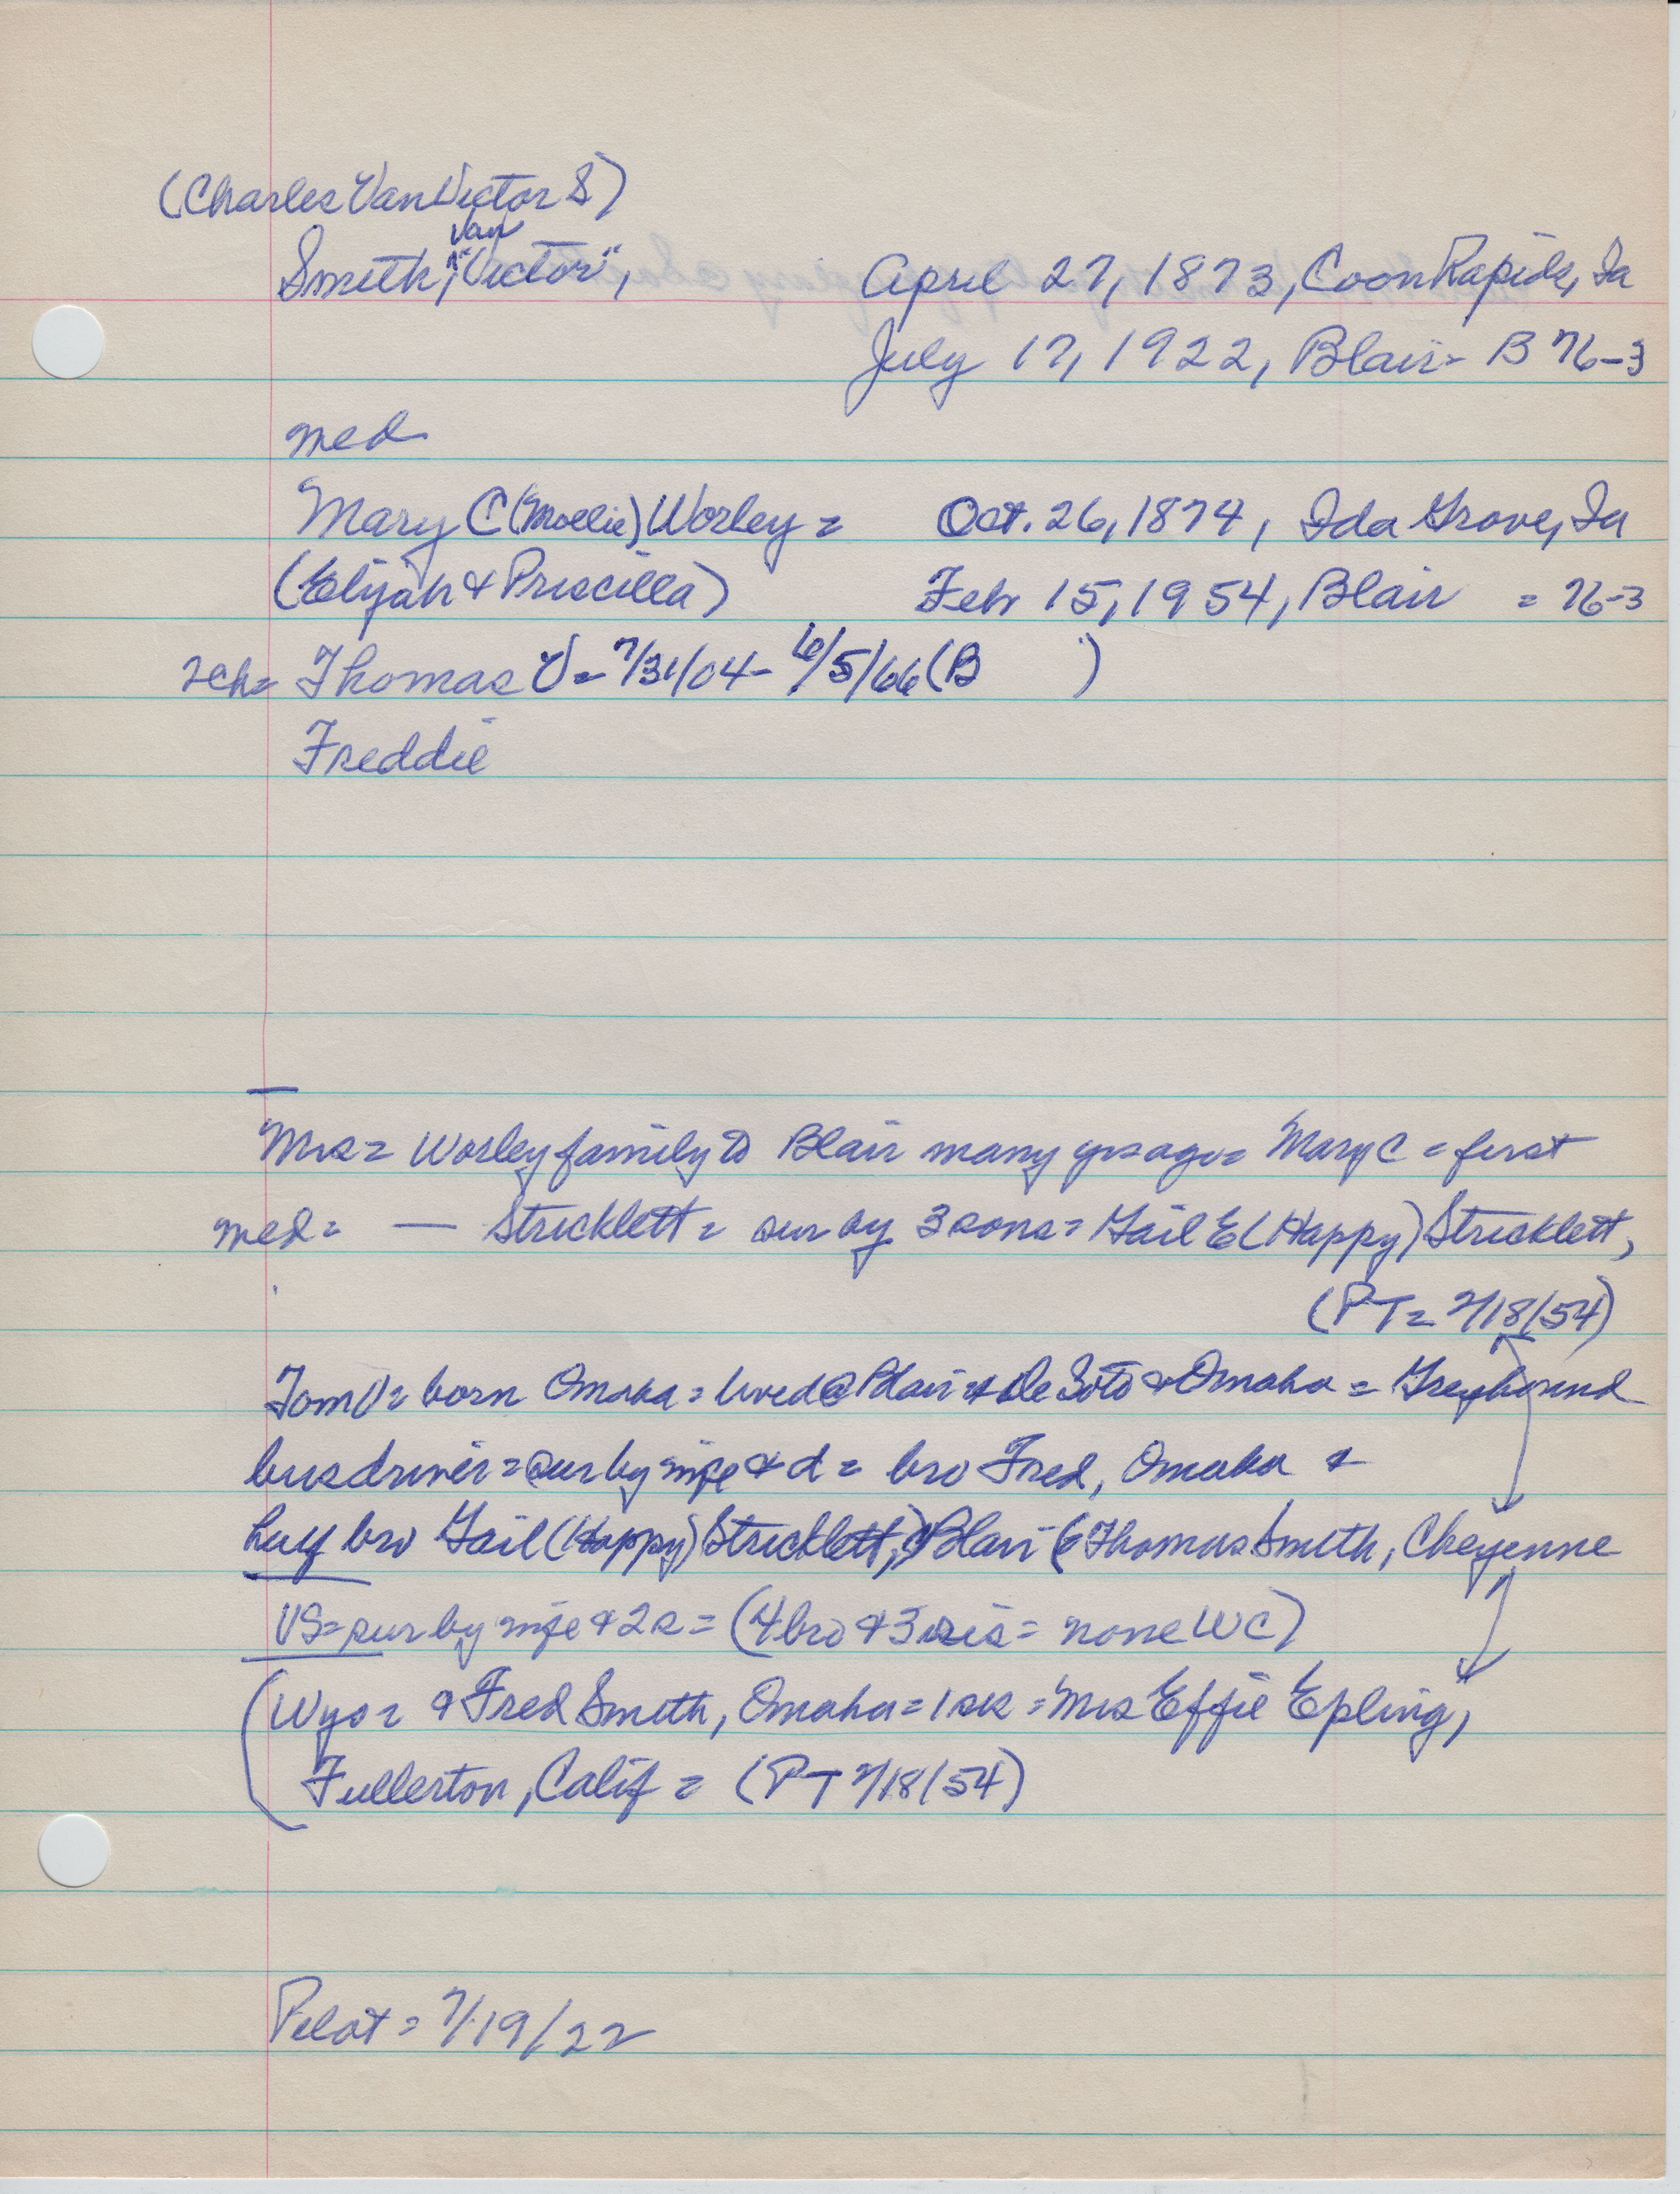 (Charles Van Victor S)
Van
Smith, "Victor", April 27, 1873, Coon Rapids, Ia
July 17, 1922, Blair = B 76-3
med
Mary C (Mollie) Worley = Oct. 26, 1874, Ida Grove, Ia
(Elijah & Priscilla) Feb 15, 1954, Blair = 76-3
2ch= Thomas V = 7/31/04 - 6/5/66 (B )
Freddie
Mrs = Worley family to Blair many yrs ago = Mary C = first
med = — Stricklett = sur by 3 sons = Gail E (Happy) Stricklett,
(PT = 2/18/54)
Tom V = born Omaha = lived @ Blair & De Soto & Omaha = Greyhound
bus driver = sur by wife & d = bro Fred, Omaha &
half bro Gail (Happy) Stricklett, Blair (& Thomas Smith, Cheyenne
VS = sur by wife & 2 s = (4 bro & 3 sis = none WC)
(Wyo = & Fred Smith, Omaha = 1 sis = Mrs Effie Epling,
Fullerton, Calif = (PT 2/18/54)
Pilot = 7/19/22